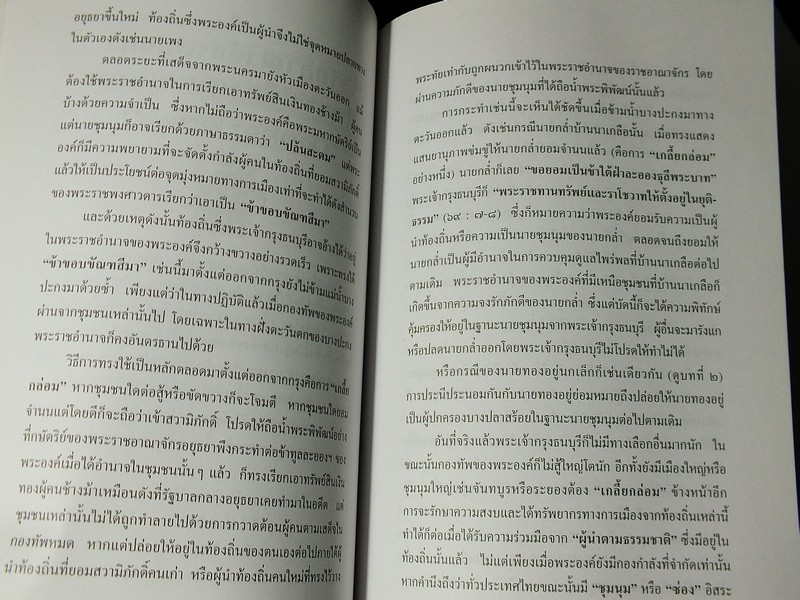 อยุธยาขึ้นใหม่ ท้องถิ่นซึ่งพระองค์เป็นผู้นำจึงไม่ใช่จุดหมายปลายทาง
ในตัวเองดังเช่นนายเพง
ตลอดระยะที่เสด็จจากพระนครมายังหัวเมืองตะวันออก แม้
ต้องใช้พระราชอำนาจในการเรียกเอาทรัพย์สินเงินทองช้างม้า ผู้คน
บ้างด้วยความจำเป็น ซึ่งหากไม่ถือว่าพระองค์คือพระมหากษัตริย์เป็น
แต่นายชุมนุมก็อาจเรียกด้วยภาษาธรรมดาว่า “ปล้นสะดม” แต่พระ
องค์ก็มีความพยายามที่จะจัดตั้งกำลังผู้คนในท้องถิ่นที่ยอมสวามิภักดิ์
แล้วให้เป็นประโยชน์ต่อจุดมุ่งหมายทางการเมืองเท่าที่จะทำได้ดังสำนวน
ของพระราชพงศาวดารเรียกว่าเอาเป็น “ข้าขอบขัณฑสีมา”
และด้วยเหตุดังนั้นท้องถิ่นซึ่งพระเจ้ากรุงธนบุรีอาจอ้างได้ว่าอยู่
ในพระราชอำนาจของพระองค์จึงกว้างขวางอย่างรวดเร็ว เพราะทรงได้
“ข้าขอบขัณฑสีมา” เช่นนี้มาตั้งแต่ออกจากกรุงยังไม่ข้ามแม่น้ำบาง
ปะกงมาด้วยซ้ำ เพียงแต่ว่าในทางปฏิบัติแล้วเมื่อกองทัพของพระองค์
ผ่านจากชุมชนเหล่านั้นไป โดยเฉพาะในทางฝั่งตะวันตกของบางปะกง
พระราชอำนาจก็คงอันตรธานไปด้วย
วิธีการทรงใช้เป็นหลักตลอดมาตั้งแต่ออกจากกรุงคือการ “เกลี้ย
กล่อม” หากชุมชนใดต่อสู้หรือขัดขวางก็จะโจมตี หากชุมชนใดยอม
จำนนแต่โดยดีก็จะถือว่าเข้าสวามิภักดิ์ โปรดให้ถือน้ำพระพิพัฒน์อย่าง
ที่กษัตริย์ของพระราชอาณาจักรอยุธยาพึงกระทำต่อข้าทูลละอองฯ ของ
พระองค์เมื่อได้อำนาจในชุมชนนั้น ๆ แล้ว ก็ทรงเรียกเอาทรัพย์สินเงิน
ทองผู้คนช้างม้าเหมือนดังที่รัฐบาลกลางอยุธยาเคยทำมาในอดีต แต่
ชุมชนเหล่านั้นไม่ได้ถูกทำลายไปด้วยการกวาดต้อนผู้คนตามเสด็จใน
กองทัพหมด หากแต่ปล่อยให้อยู่ในท้องถิ่นของตนเองต่อไปภายใต้ผู้
นำท้องถิ่นที่ยอมสวามิภักดิ์คนเก่า หรือผู้นำท้องถิ่นคนใหม่ที่ทรงไว้วาง
พระทัยเท่ากับถูกผนวกเข้าไว้ในพระราชอำนาจของราชอาณาจักร โดย
ผ่านความภักดีของนายชุมนุมที่ได้ถือน้ำพระพิพัฒน์นั้นแล้ว
การกระทำเช่นนี้จะเห็นได้ชัดขึ้นเมื่อข้ามน้ำบางปะกงมาทาง
ตะวันออกแล้ว ดังเช่นกรณีนายกล่ำบ้านนาเกลือนั้น เมื่อทรงแสดง
แสนยานุภาพข่มขู่ให้นายกล่ำยอมจำนนแล้ว (คือการ “เกลี้ยกล่อม”
อย่างหนึ่ง) นายกล่ำก็เลย “ขอยอมเป็นข้าใต้ฝ่าละอองธุลีพระบาท”
พระเจ้ากรุงธนบุรีก็ “พระราชทานทรัพย์และราโชวาทให้ตั้งอยู่ในยุติ-
ธรรม” (๖๙ : ๗-๘) ซึ่งก็หมายความว่าพระองค์ยอมรับความเป็นผู้
นำท้องถิ่นหรือความเป็นนายชุมนุมของนายกล่ำ ตลอดจนถึงยอมให้
นายกล่ำเป็นผู้มีอำนาจในการควบคุมดูแลไพร่พลที่บ้านนาเกลือต่อไป
ตามเดิม พระราชอำนาจของพระองค์ที่มีเหนือชุมชนที่บ้านนาเกลือก็
เกิดขึ้นจากความจงรักภักดีของนายกล่ำ ซึ่งแต่บัดนี้ก็จะได้ความพิทักษ์
คุ้มครองให้อยู่ในฐานะนายชุมนุมจากพระเจ้ากรุงธนบุรี ผู้อื่นจะมารังแก
หรือปลดนายกล่ำออกโดยพระเจ้ากรุงธนบุรีไม่โปรดให้ทำไม่ได้
หรือกรณีของนายทองอยู่นกเล็กก็เช่นเดียวกัน (ดูบทที่ ๒)
การประนีประนอมกันกับนายทองอยู่ย่อมหมายถึงปล่อยให้นายทองอยู่
เป็นผู้ปกครองบางปลาสร้อยในฐานะนายชุมนุมต่อไปตามเดิม
อันที่จริงแล้วพระเจ้ากรุงธนบุรีก็ไม่มีทางเลือกอื่นมากนัก ใน
ขณะนั้นกองทัพของพระองค์ก็ไม่สู้ใหญ่โตนัก อีกทั้งยังมีเมืองใหญ่หรือ
ชุมนุมใหญ่เช่นจันทบูรหรือระยองต้อง “เกลี้ยกล่อม” ข้างหน้าอีก
การจะรักษาความสงบและได้ทรัพยากรทางการเมืองจากท้องถิ่นเหล่านี้
ทำได้ก็ต่อเมื่อได้รับความร่วมมือจาก “ผู้นำตามธรรมชาติ” ซึ่งมีอยู่ใน
ท้องถิ่นนั้นแล้ว ไม่แต่เพียงเมื่อพระองค์ยังมีกองกำลังที่จำกัดเท่านั้น
หากคำนึงถึงว่าทั่วประเทศไทยขณะนั้นมี “ชุมนุม” หรือ “ซ่อง” อิสระ